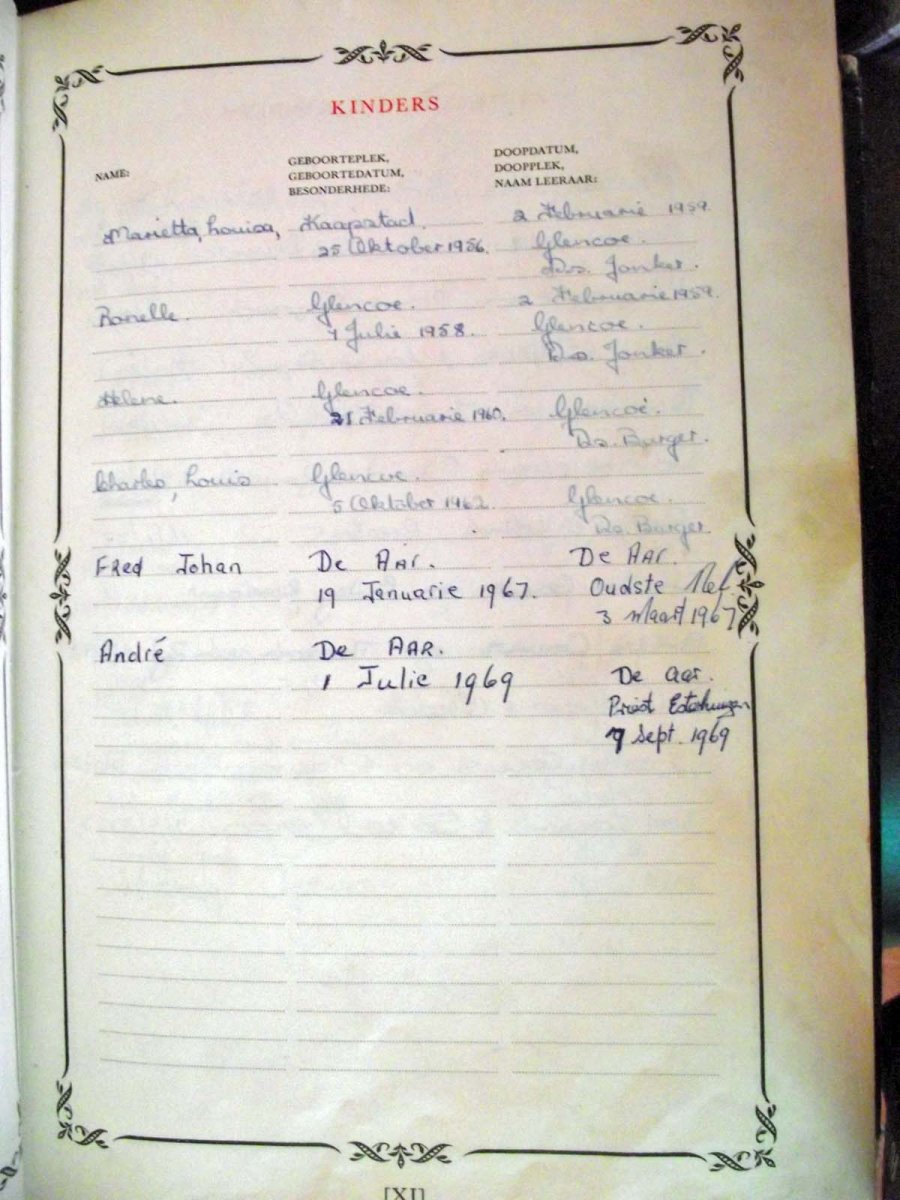 KINDERS
NAME:
GEBOORTEPLEK,
GEBOORTEDATUM,
BESONDERHEDE:
DOOPDATUM,
DOOPPLEK,
NAAM LEERAAR:
Marietta, Louisa, Kaapstad. 2 Februarie 1959.
25 Oktober 1956. Glencoe.
Ds. Jonker.
Ronelle. Glencoe. 2 Februarie 1959.
7 Julie 1958. Glencoe.
Ds. Jonker.
Helene. Glencoe.
21 Februarie 1960. Glencoe.
Ds. Burger.
Charles, Louis Glencoe.
5 Oktober 1962. Glencoe.
Ds. Burger.
Fred Johan De Aar. De Aar.
19 Januarie 1967. Oudste Nel
3 Maart 1967
André De AAR.
1 Julie 1969 De Aar.
Priest Esterhuizen
7 Sept. 1969
[XI]